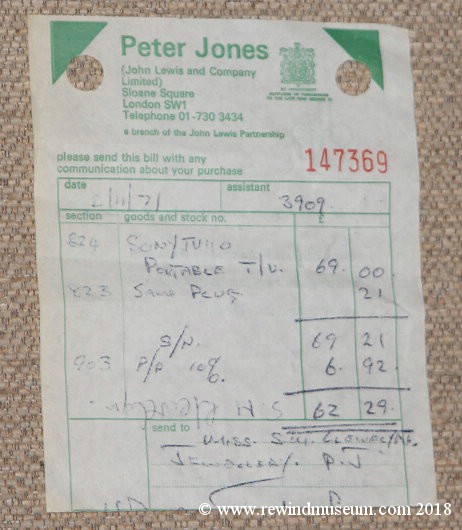 Peter Jones
(John Lewis and Company
Limited)
Sloane Square
London SW1
Telephone 01-730 3434
a branch of the John Lewis Partnership
BY APPOINTMENT
please send this bill with any
communication about your purchase
147369
date
assistant
/11/71
3909
section goods and stock no. £
624 SONY TV110
PORTABLE T/V. 69. 00
823 Plug 21
S/N. 69 21
903 10% 6. 92
62 29.
send to
Miss
Jewellery. P.J
© www.rewindmuseum.com 2018